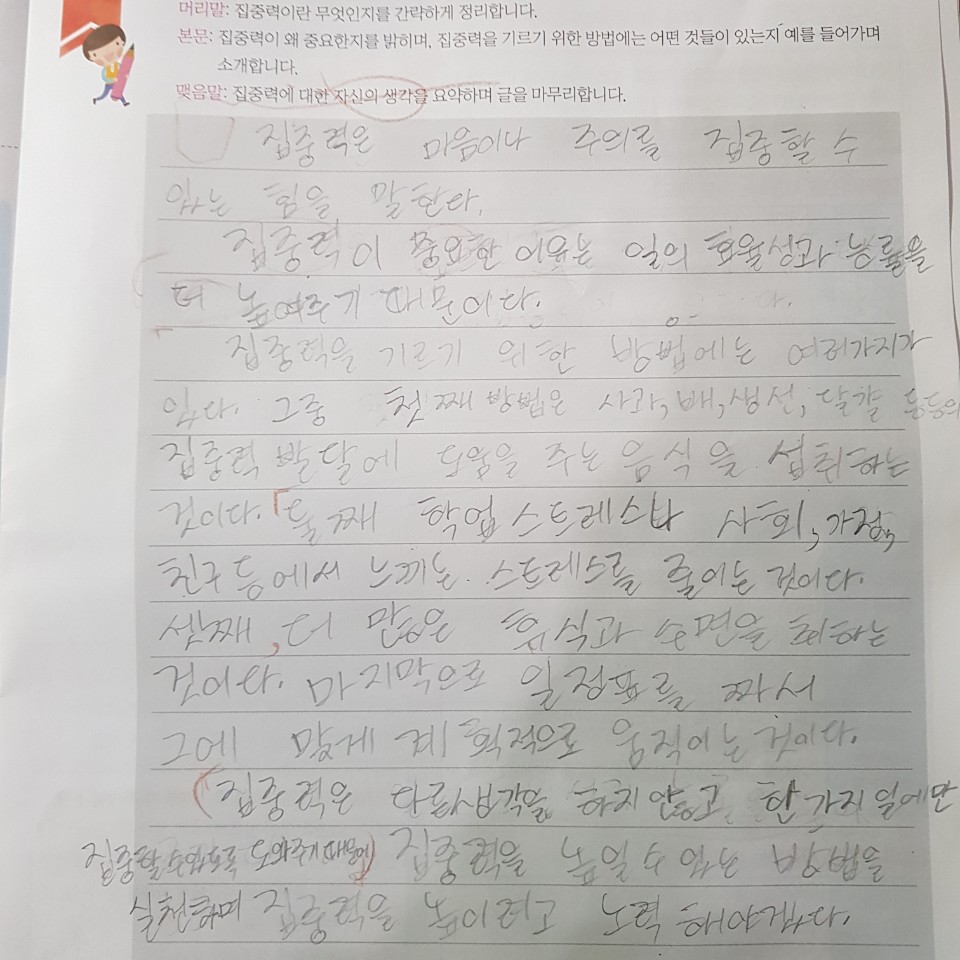 머리말: 집중력이란 무엇인지를 간략하게 정리합니다.
본문: 집중력이 왜 중요한지를 밝히며, 집중력을 기르기 위한 방법에는 어떤 것들이 있는지 예를 들어가며
소개합니다.
맺음말: 집중력에 대한 자신의 생각을 요약하며 글을 마무리합니다.
집중력은 마음이나 주의를 집중할 수
있는 힘을 말한다.
집중력이 중요한 이유는 일의 효율성과 능률을
더 높여주기 때문이다.
집중력을 기르기 위한 방법에는 여러가지가
있다. 그중 첫째 방법은 사과, 배, 생선, 달걀 등등의
집중력 발달에 도움을 주는 음식을 섭취하는
것이다. 둘째 학업스트레스나 사회, 가정,
친구 등에서 느끼는 스트레스를 줄이는 것이다.
셋째, 더 많은 휴식과 수면을 취하는
것이다. 마지막으로 일정표를 짜서
그에 맞게 계획적으로 움직이는 것이다.
(집중력은 다른생각을 하지 않고 한 가지 일에만
집중할 수있도록 도와주기 때문에) 집중력을 높일 수 있는 방법을
실천하며 집중력을 높이려고 노력해야겠다.